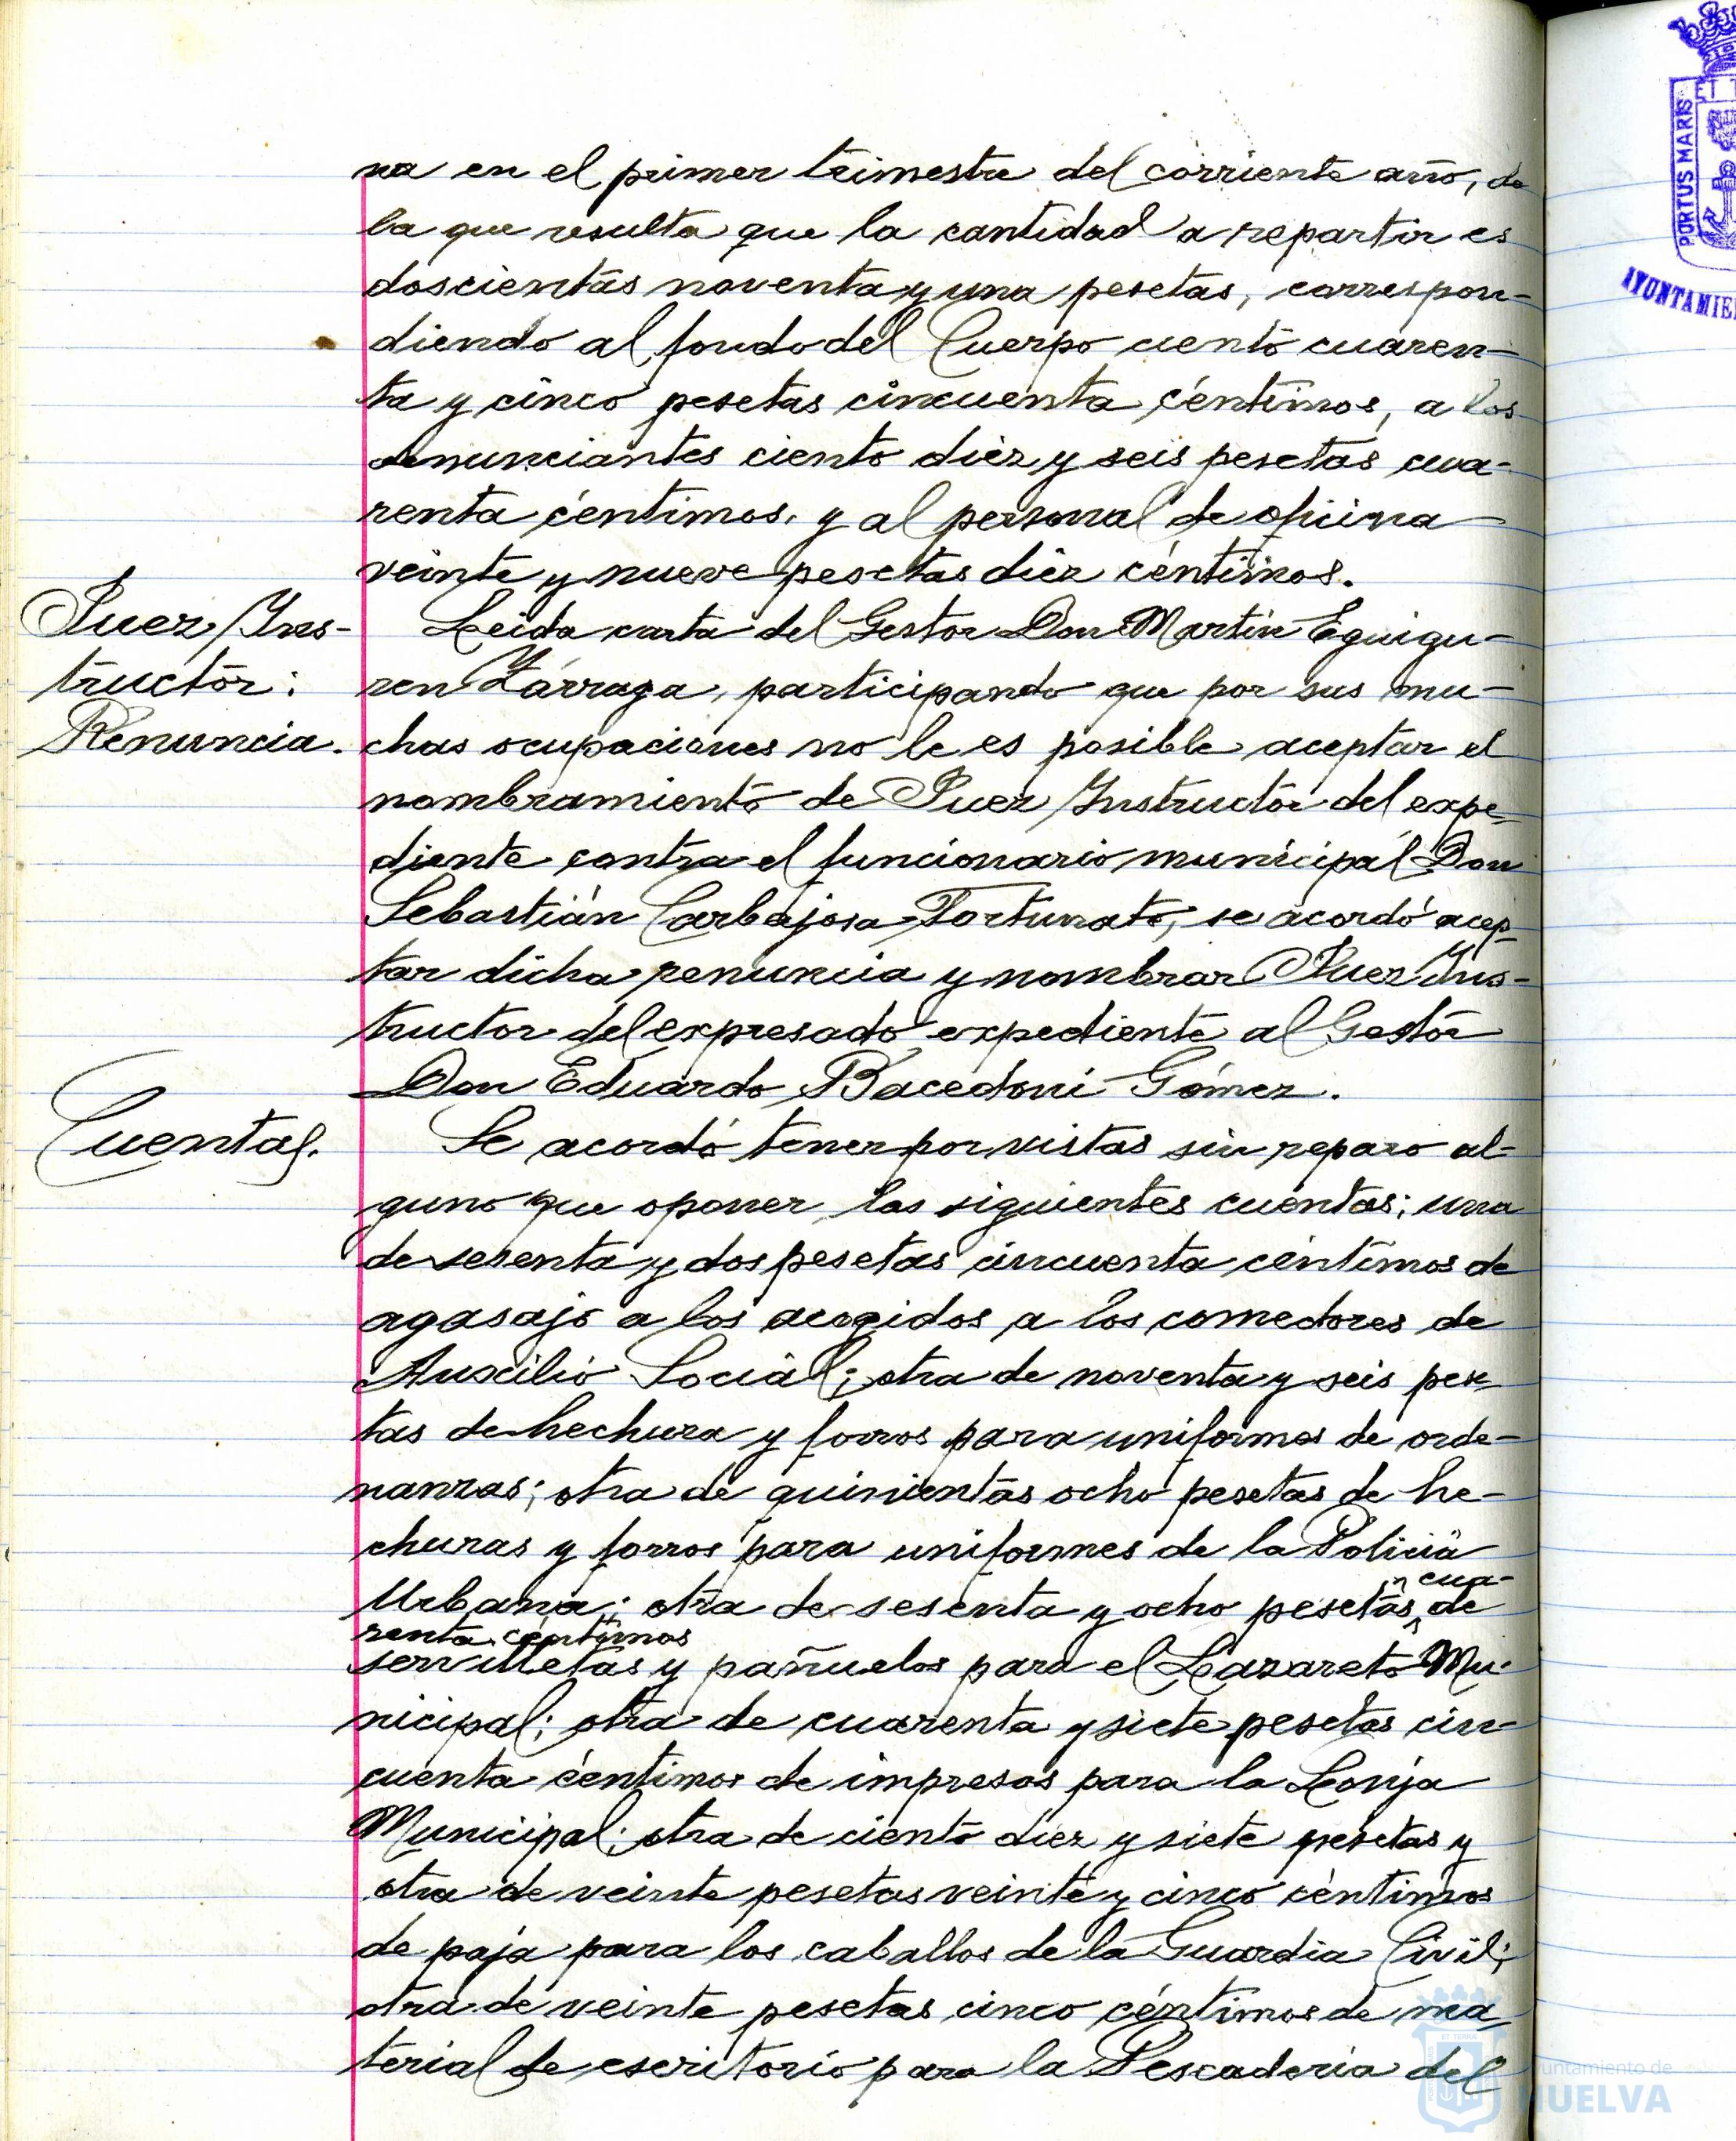 na en el primer trimestre del corriente año, de
la que resulta que la cantidad a repartir es
doscientas noventa y una pesetas, correspon-
diendo al fondo del Cuerpo ciento cuaren-
ta y cinco pesetas cincuenta céntimos, a los
denunciantes ciento diez y seis pesetas cua-
renta céntimos, y al personal de oficina
veinte y nueve pesetas diez céntimos.
Juez Ins-
tructor:
Renuncia.
Leida carta del Gestor Don Martín Eguigu-
ren Zárraga, participando que por sus mu-
chas ocupaciones no le es posible aceptar el
nombramiento de Juez Instructor del expe-
diente contra el funcionario municipal Don
Sebastián Carbajosa Fortunato, se acordó acep-
tar dicha renuncia y nombrar Juez Ins-
tructor del expresado expediente al Gestor
Don Eduardo Bacedoni Gómez.
Cuentas.
Se acordó tener por vistas sin reparo al-
guno que oponer las siguientes cuentas; una
de sesenta y dos pesetas cincuenta céntimos de
agasajo a los acogidos a los comedores de
Auxilio Social; otra de noventa y seis pese-
tas de hechura y forros para uniformes de orde-
nanzas; otra de quinientas ocho pesetas de he-
churas y forros para uniformes de la Policia
cua-
Urbana; otra de sesenta y ocho pesetas de
renta céntimos
servilletas y pañuelos para el Lazareto Mu-
nicipal; otra de cuarenta y siete pesetas cin-
cuenta céntimos de impresos para la Lonja
Municipal; otra de ciento diez y siete pesetas y
otra de veinte pesetas veinte y cinco céntimos
de paja para los caballos de la Guardia Civil;
otra de veinte pesetas cinco céntimos de ma-
terial de escritorio para la Pescaderia del
PORTUS MARIS
AYUNTAMIE
Ayuntamiento de
HUELVA